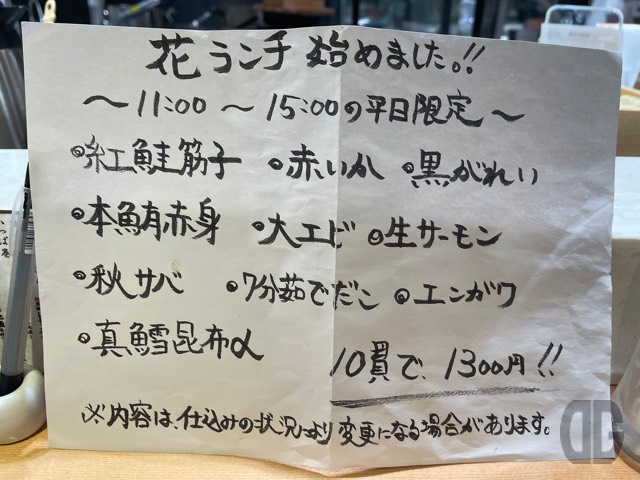 花ランチ始めました。!!
〜11:00 〜 15:00の平日限定〜
◉紅鮭筋子 ◉赤いか ◉黒がれい
◉本鮪赤身 ◉大エビ ◉生サーモン
◉秋サバ ◉7分茹でだこ ◉エンガワ
◉真鱈昆布〆
10貫で、1300円!!
※内容は、仕込みの状況により変更になる場合があります。
DG